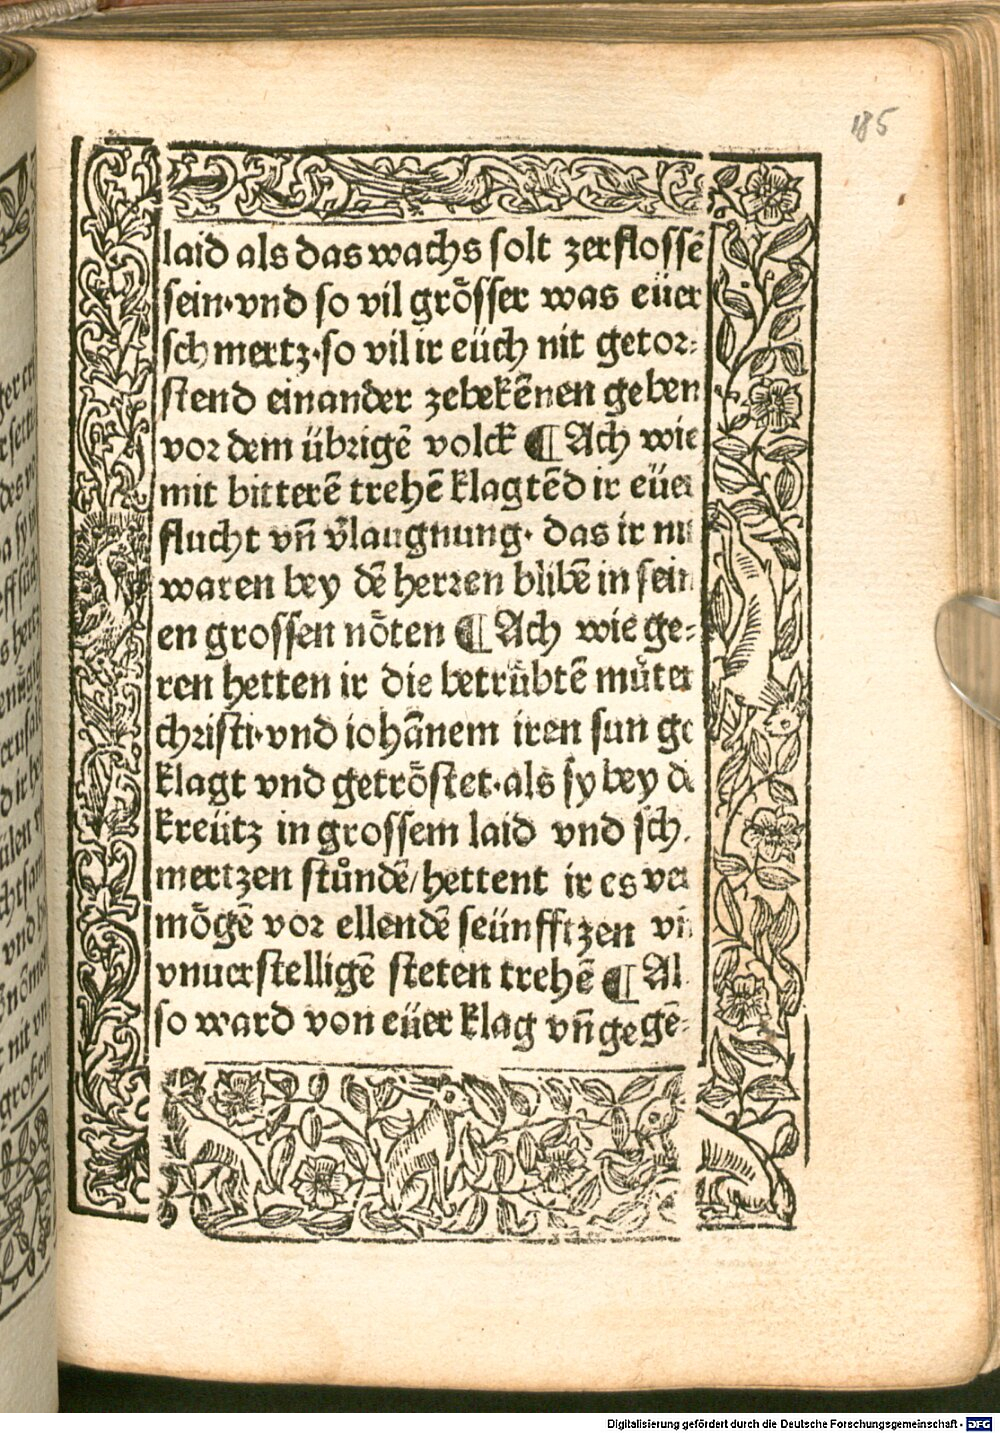 185
laid als das wachs solt zerflossē
sein·vnd so vil grösser was eüer
schmertz·so vil ir eüch nit getor-
stend einander zebekēnen geben
vor dem übrigē volck ¶ Ach wie
mit bitterē trehē klagtēd ir eüer
flucht vn̄ v̄laugnung· das ir nit
waren bey dē herren blibē in sein
en grossen nöten ¶ Ach wie ge-
ren hetten ir die betrübtē můter
christi·vnd iohānem iren sun ge
klagt vnd getröstet·als sy bey dē
kreütz in grossem laid vnd sch-
mertzen stůndē/hettent ir es ver
mögē vor ellendē seünfftzen vn̄
vnuerstelligē steten trehē ¶ Al-
so ward von eüer klag vn̄ gegē-
Digitalisierung gefördert durch die Deutsche Forschungsgemeinschaft - DFG